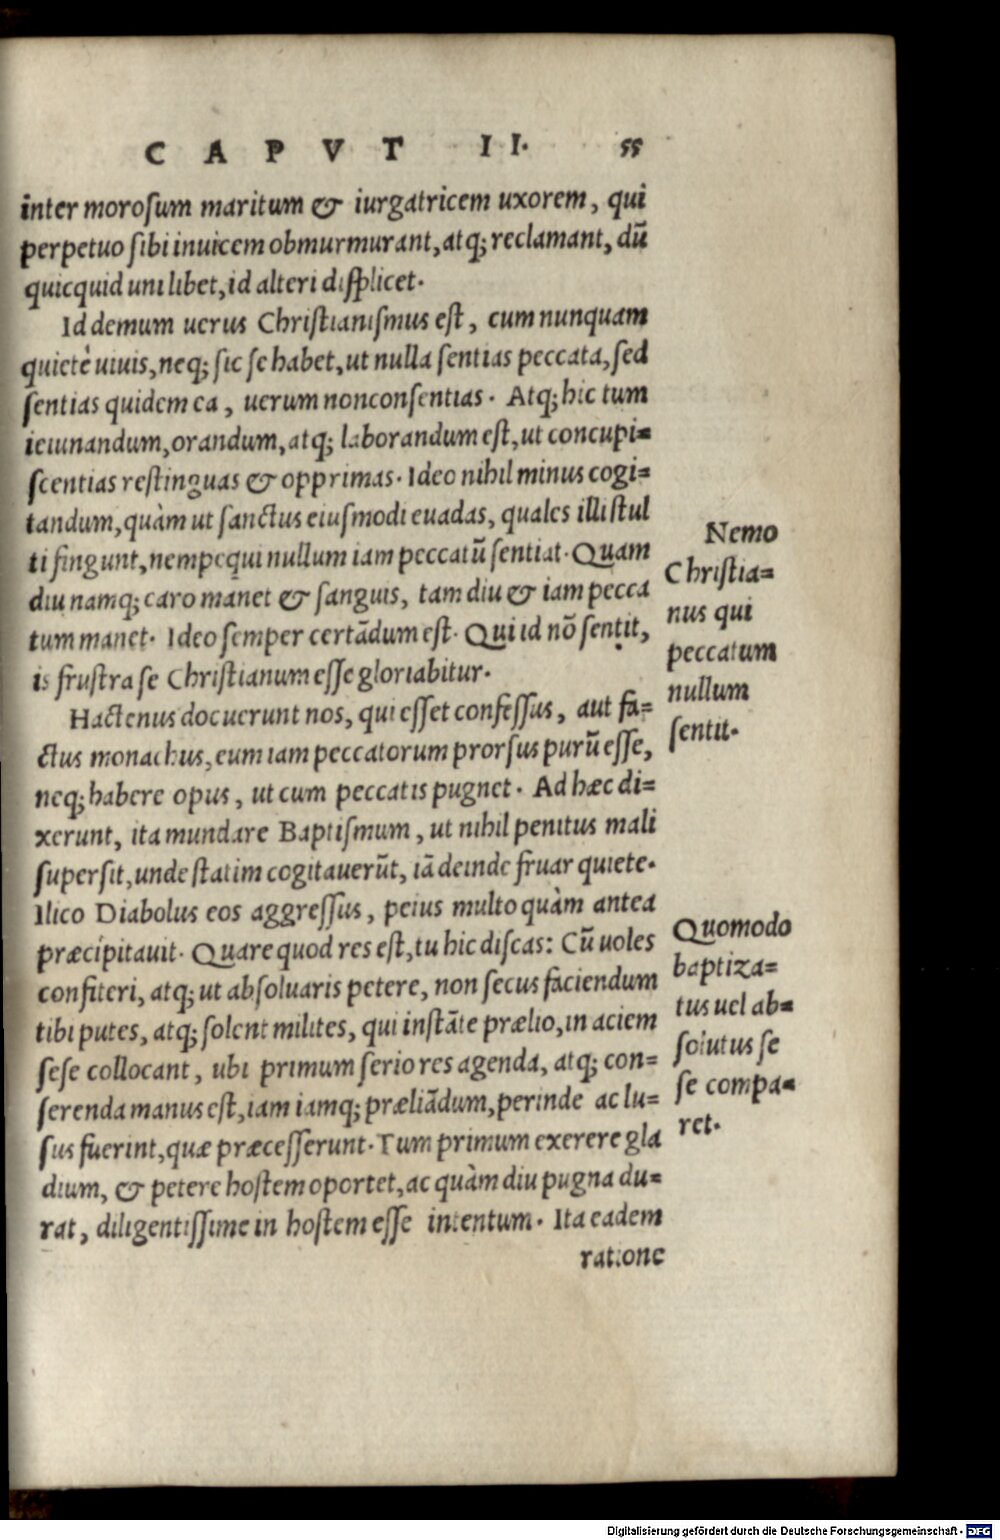 CAPVT II. 55
inter moroſum maritum & iurgatricem uxorem, qui
perpetuo ſibi inuicem obmurmurant, atq; reclamant, dū
quicquid uni libet, id alteri diſplicet.
Id demum uerus Chriſtianiſmus eſt, cum nunquam
quietè uiuis, neq; ſic ſe habet, ut nulla ſentias peccata, ſed
ſentias quidem ea, uerum non conſentias. Atq; hic tum
ieiunandum, orandum, atq; laborandum eſt, ut concupi=
ſcentias reſtinguas & opprimas. Ideo nihil minus cogi=
tandum, quàm ut ſanctus eiuſmodi euadas, quales illi ſtul
ti fingunt, nempe qui nullum iam peccatū ſentiat. Quam
diu namq; caro manet & ſanguis, tam diu & iam pecca
tum manet. Ideo ſemper certādum eſt. Qui id nō ſentit,
is fruſtra ſe Chriſtianum eſſe gloriabitur.
Nemo
Chriſtia=
nus qui
peccatum
nullum
ſentit.
Hactenus docuerunt nos, qui eſſet confeſſus, aut fa=
ctus monachus, eum iam peccatorum prorſus purū eſſe,
neq; habere opus, ut cum peccatis pugnet. Ad hæc di=
xerunt, ita mundare Baptiſmum, ut nihil penitus mali
ſuperſit, unde ſtatim cogitauerūt, iā deinde fruar quiete.
Ilico Diabolus eos aggreſſus, peius multo quàm antea
præcipitauit. Quare quod res eſt, tu hic diſcas: Cū uoles
confiteri, atq; ut abſoluaris petere, non ſecus faciendum
tibi putes, atq; ſolent milites, qui inſtāte prælio, in aciem
ſeſe collocant, ubi primum ſerio res agenda, atq; con=
ſerenda manus eſt, iam iamq; præliādum, perinde ac lu=
ſus fuerint, quæ præceſſerunt. Tum primum exerere gla
dium, & petere hoſtem oportet, ac quàm diu pugna du=
rat, diligentiſſime in hoſtem eſſe intentum. Ita eadem
ratione
Quomodo
baptiza=
tus uel ab=
ſolutus ſe
ſe compa=
ret.
Digitalisierung gefördert durch die Deutsche Forschungsgemeinschaft - DFG